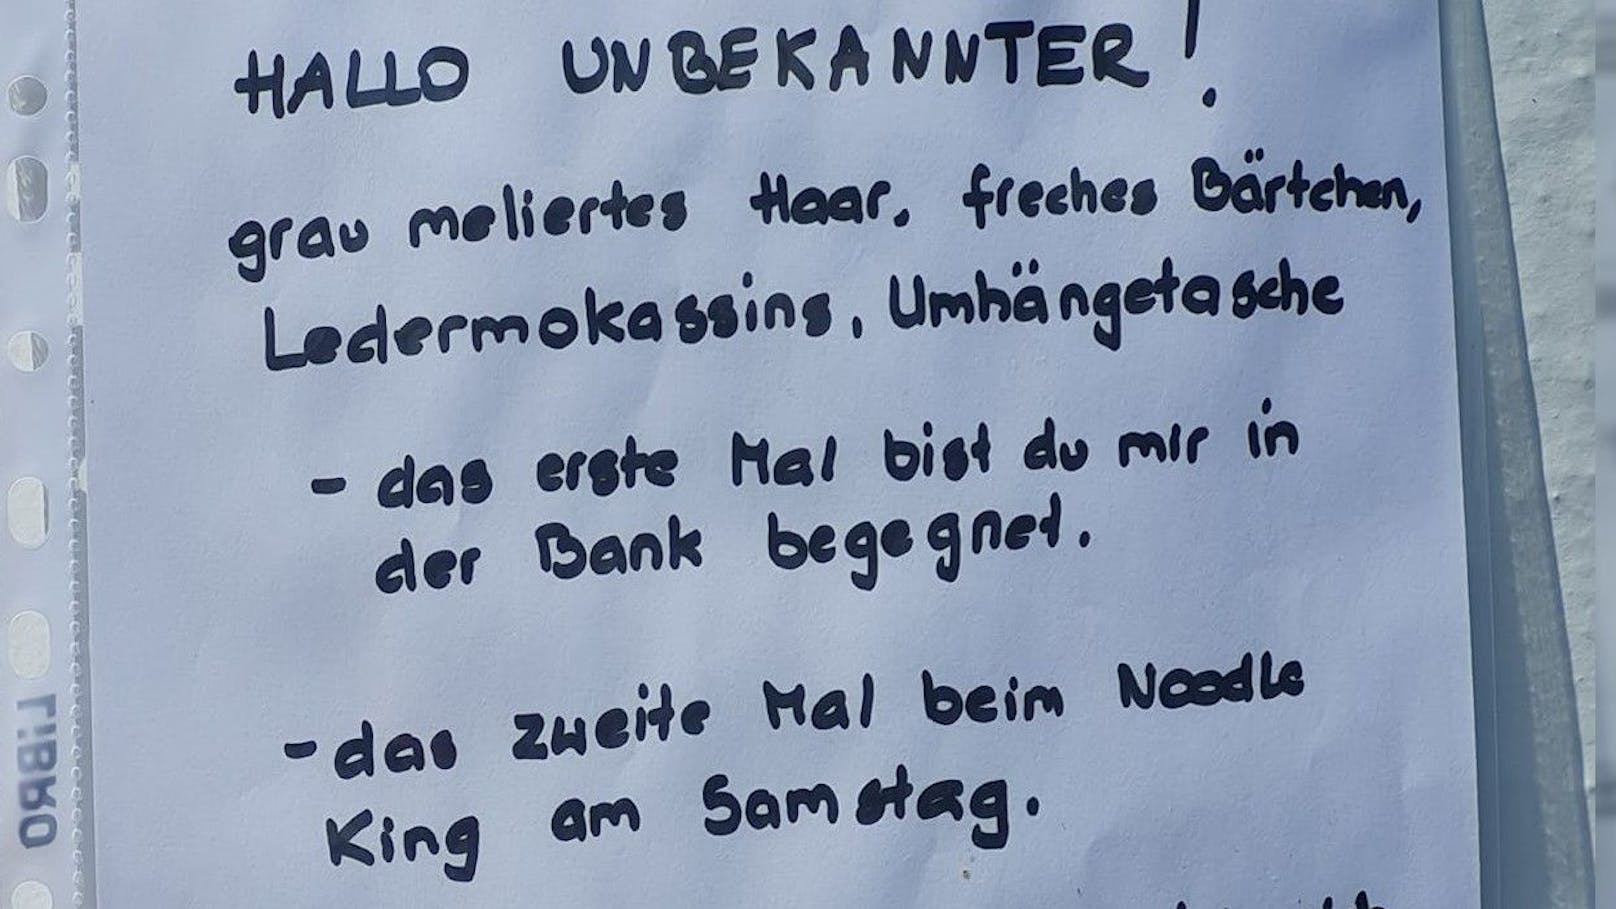 HALLO UNBEKANNTER!
grau meliertes Haar, freches Bärtchen,
Ledermokassins, Umhängetasche
- das erste Mal bist du mir in
der Bank begegnet.
- das zweite Mal beim Noodle
King am Samstag.
LIBRO